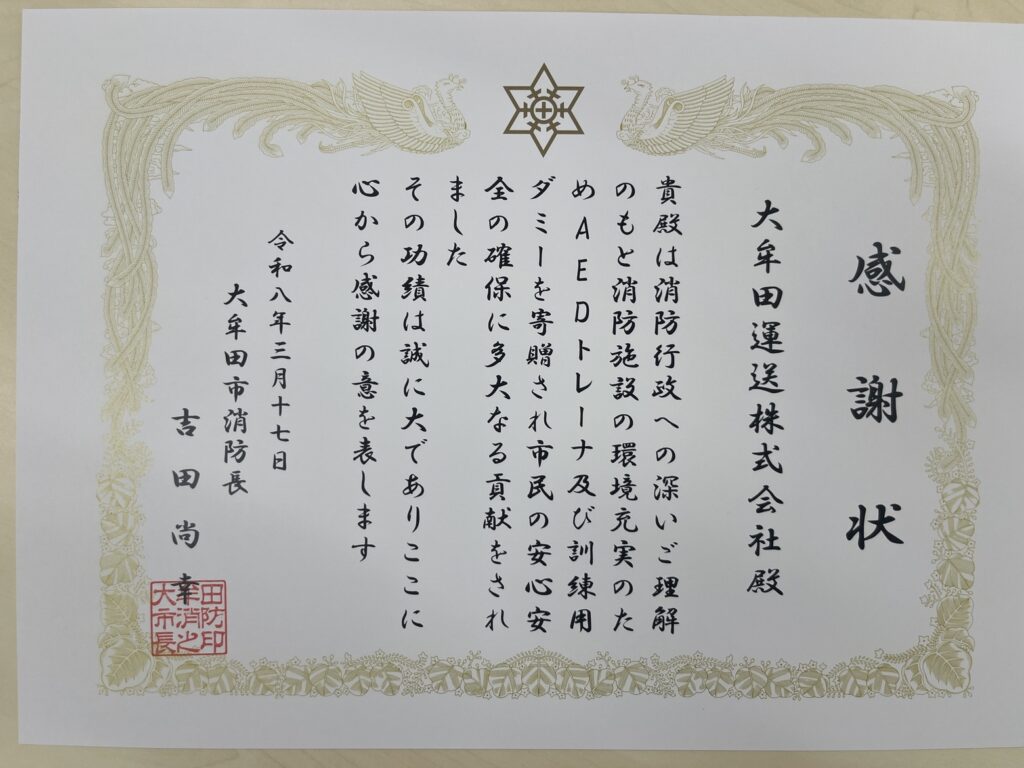 感謝状
大牟田運送株式会社殿
貴殿は消防行政への深いご理解
のもと消防施設の環境充実のた
めAEDトレーナ及び訓練用
ダミーを寄贈され市民の安心安
全の確保に多大なる貢献をされ
ました
その功績は誠に大でありここに
心から感謝の意を表します
令和八年三月十七日
大牟田市消防長
吉田尚幸
田防印
牟消之
大市長